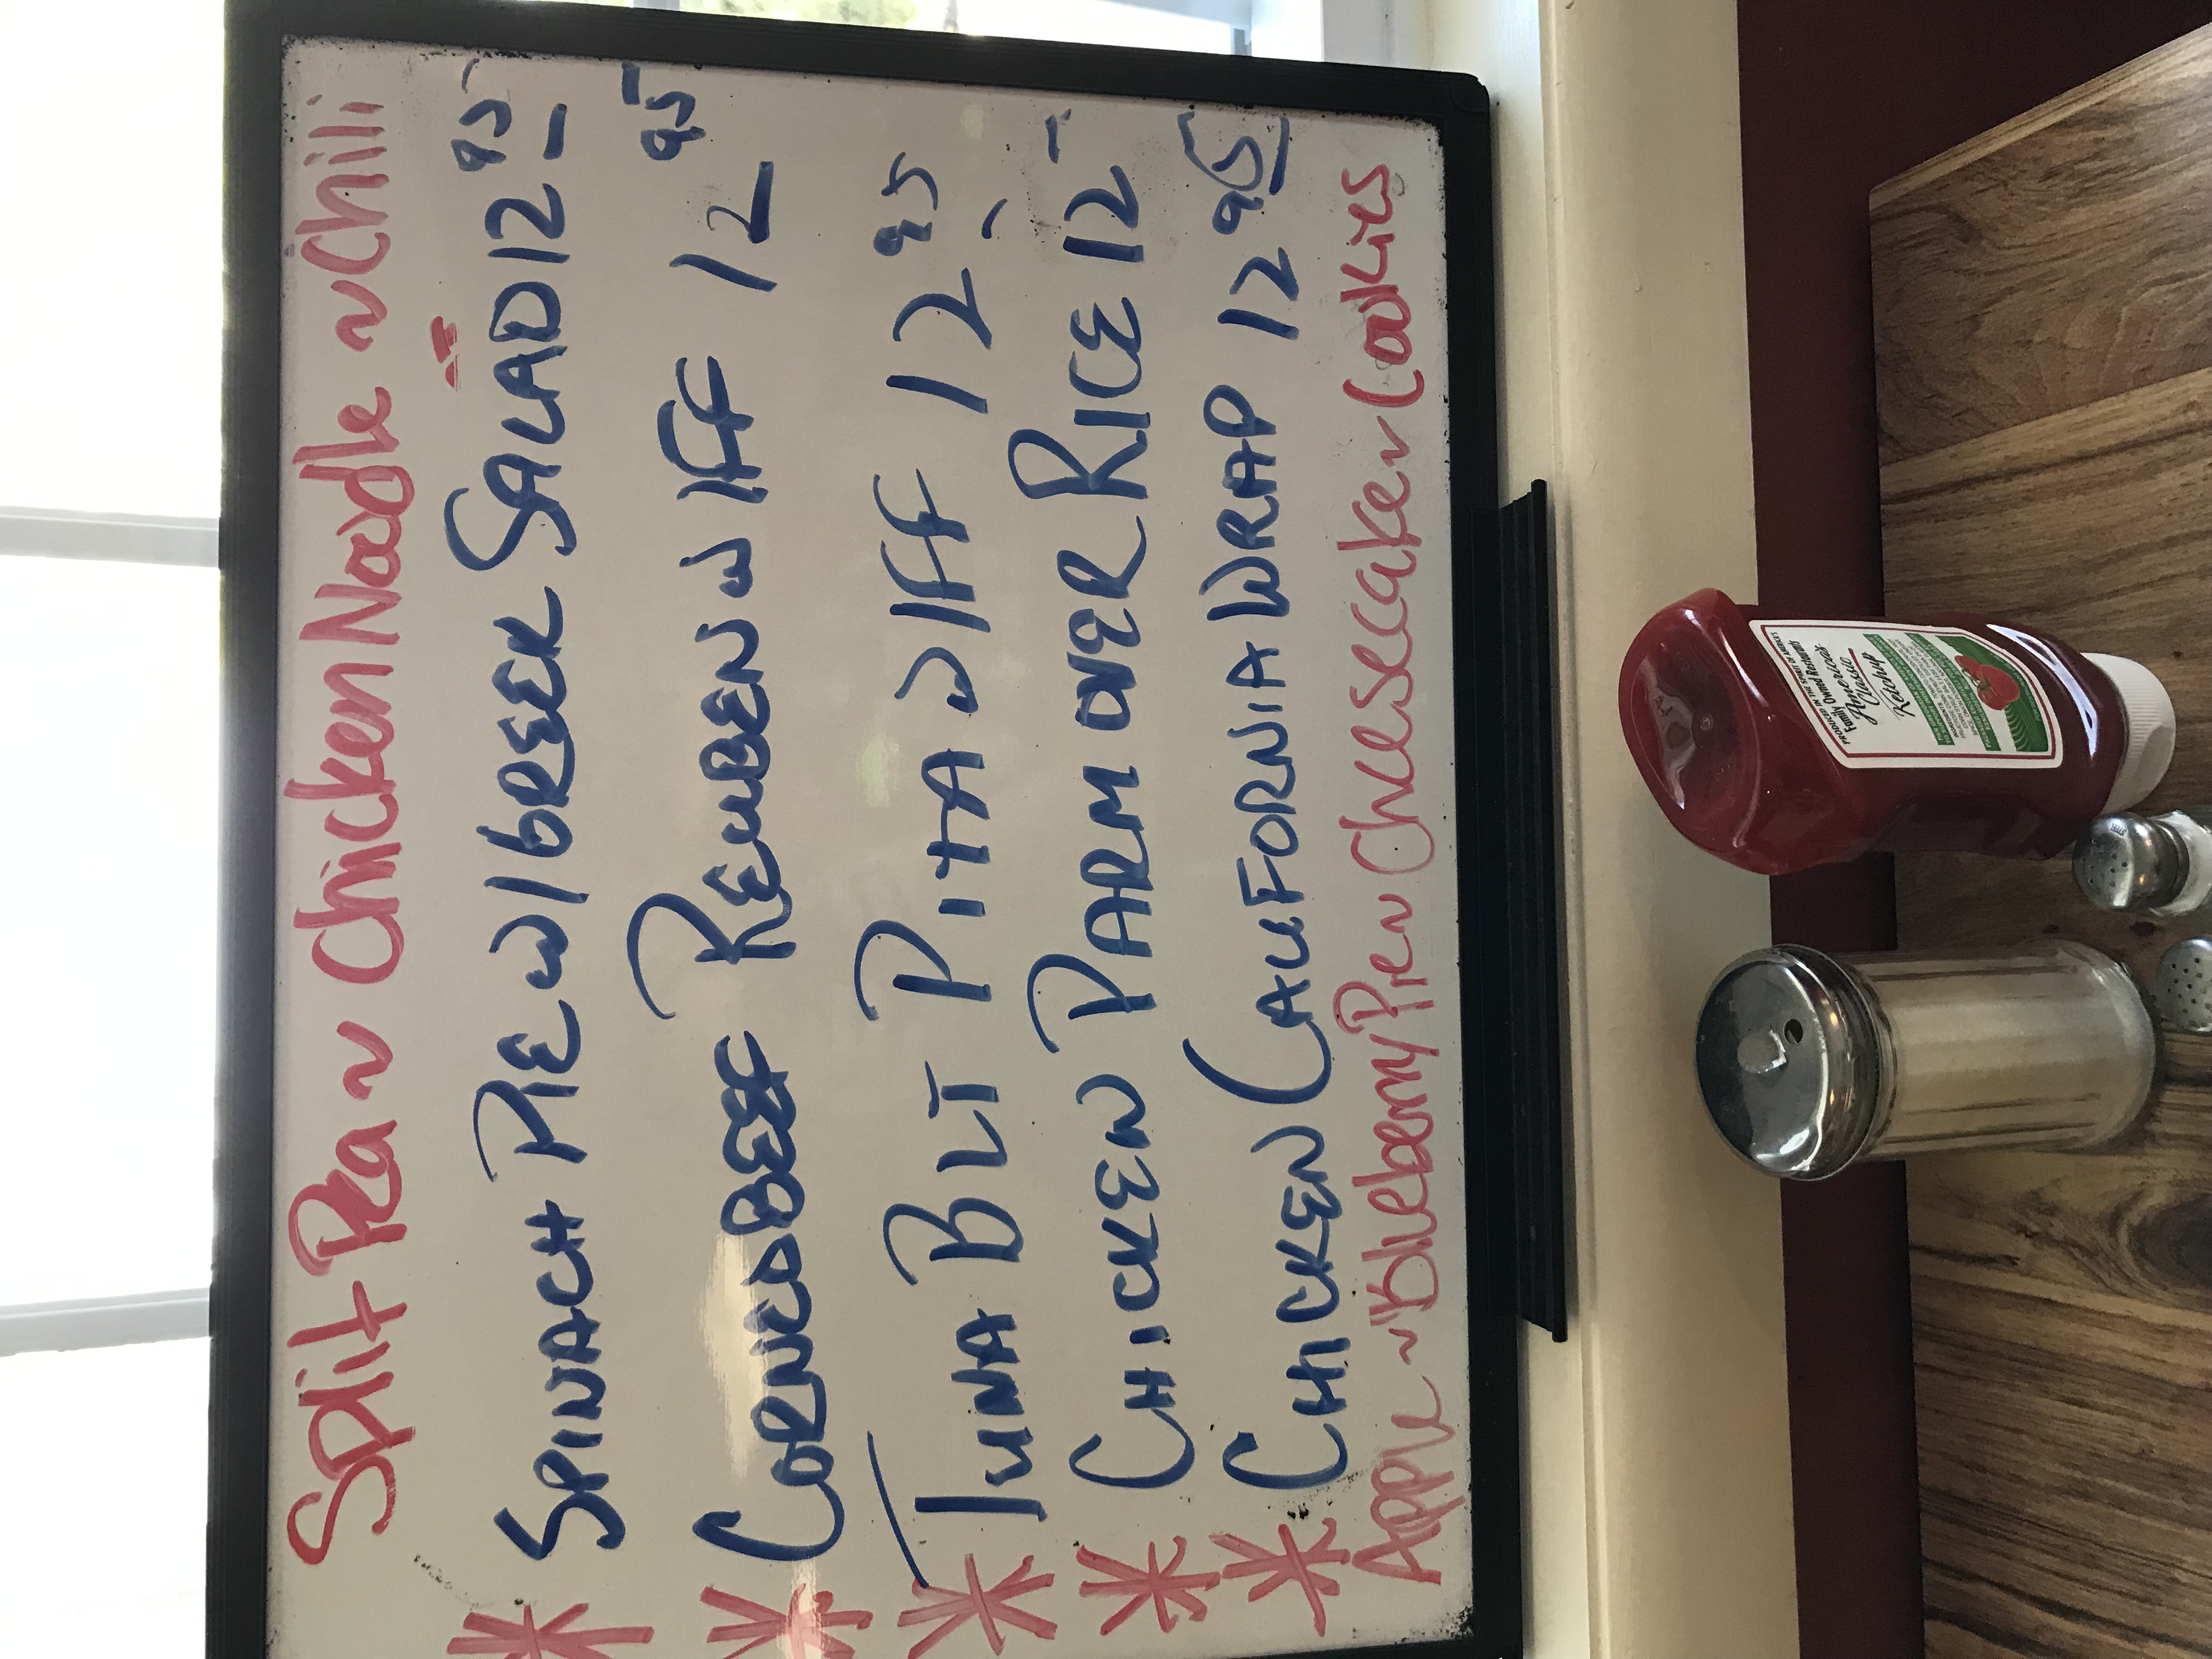 Split Pea ~ Chicken Noodle ~ Chili
* SPINACH PIE W/ GREEK SALAD 12 95
* CORNED BEEF REUBEN W/FF 12 95
* TUNA BLT PITA W/FF 12 95
* CHICKEN PARM OVER RICE 12
* CHICKEN CALIFORNIA WRAP 12 95
Apple ~ Blueberry Pie ~ Cheesecake ~ Cookies
Family Owned Restaurants
American
Classic
Ketchup